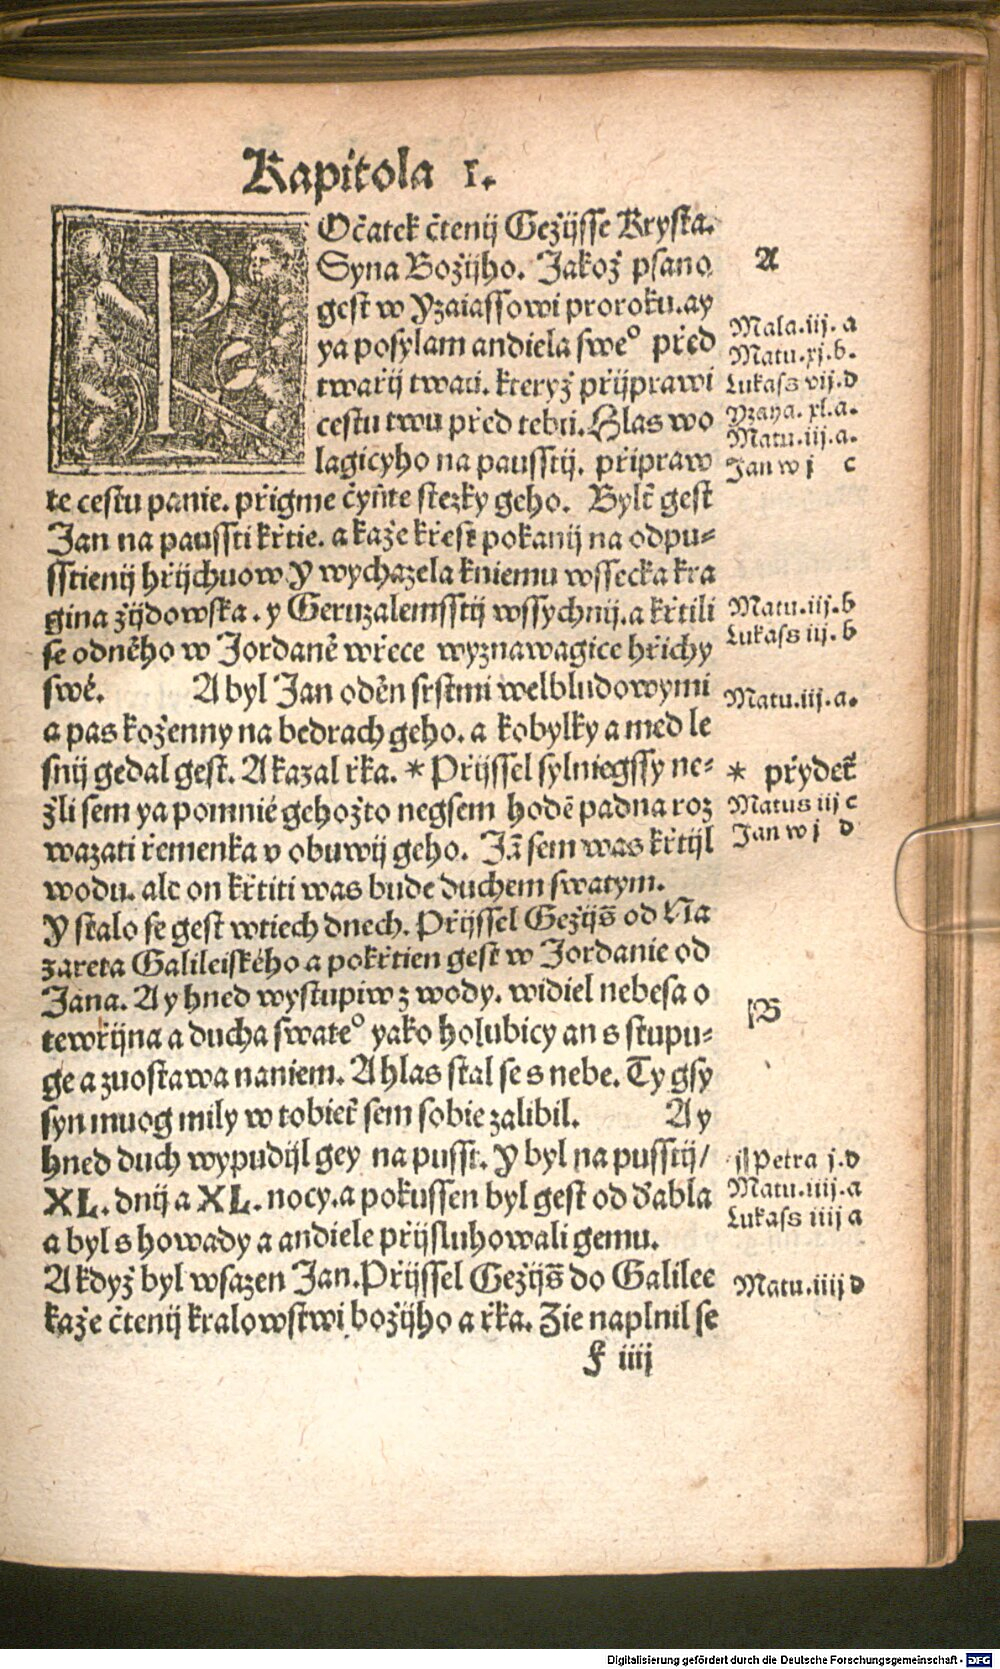 Kapitola I.
POčatek čtenij Gežijsse Krysta.
Syna Božijho. Jakož psano
gest w Yzaiassowi proroku. ay
ya posylam andiela sweº před
twařij twau. kteryž přijprawi
cestu twu před tebu. Hlas wo
lagicyho na pausstij. připraw
te cestu panie. přigme čyňte stezky geho. Bylť gest
Jan na paussti křtie. a kaže křest pokanij na odpu=
sstienij hřijchuow Y wychazela kniemu wssecka kra
gina žijdowska. y Geruzalemsstij wssychnij. a křtili
se odněho w Jordaně wřece wyznawagice hřichy
swé. A byl Jan oděn srstmi welbludowymi
a pas koženny na bedrach geho. a kobylky a med le
snij gedal gest. A kazal řka. * Přijssel sylniegssy ne=
žli sem ya pomnié gehožto negsem hodē padna roz
wazati řemenka v obuwij geho. Jā sem was křtijl
wodu. ale on křtiti was bude duchem swatym.
Y stalo se gest wtiech dnech. Přijssel Gežijs̄ od Na
zareta Galileiského a pokřtien gest w Jordanie od
Jana. A y hned wystupiw z wody. widiel nebesa o
tewřijna a ducha swateº yako holubicy an s stupu=
ge a zuostawa naniem. A hlas stal se s nebe. Ty gsy
syn muog mily w tobieť sem sobie zalibil. A y
hned duch wypudijl gey na pusst. Y byl na pusstij/
XL. dnij a XL. nocy. a pokussen byl gest od ďabla
a byl s howady a andiele přijsluhowali gemu.
A když byl wsazen Jan. Přijssel Gežijs̄ do Galilee
kaže čtenij kralowstwi božijho a řka. Zie naplnil se
f iiij
A
Mala. iij. a
Matu. xj. b.
Lukass vij. d
Yzaya. xl. a.
Matu. iij. a.
Jan w j c
Matu. iij. b
Lukass iij. b
Matu. iij. a.
* přydeť
Matus iij c
Jan w j d
B
Petra j. d
Matu. iiij. a
Lukass iiij a
Matu. iiij d
Digitalisierung gefördert durch die Deutsche Forschungsgemeinschaft - DFG